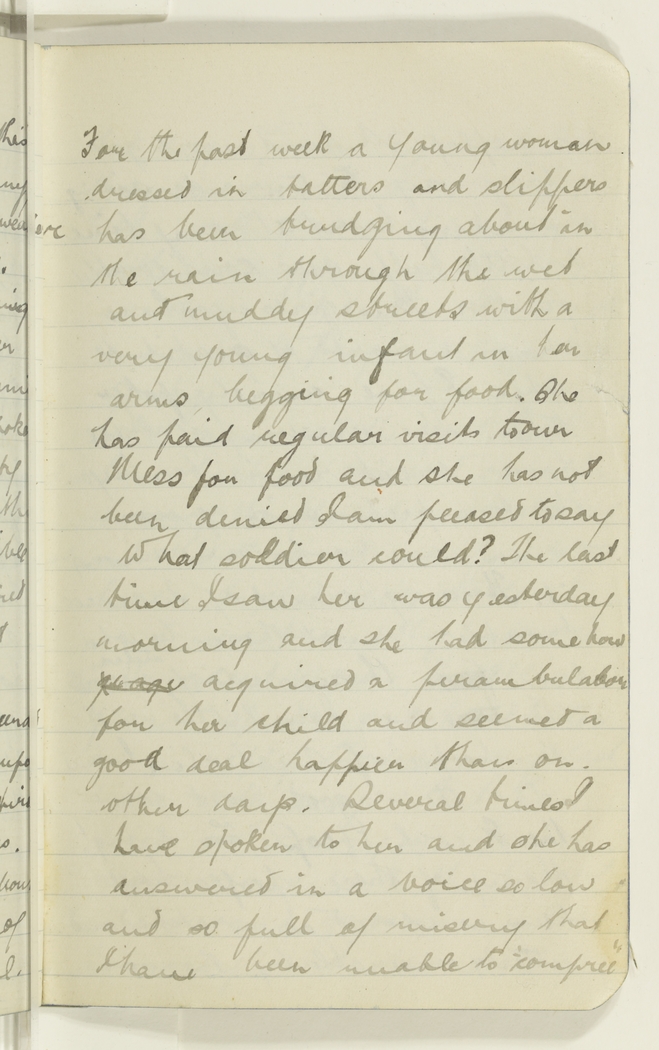 For the past week a young woman
dressed in tatters and slippers
has been trudging about in
the rain through the wet
and muddy streets with a
very young infant in her
arms begging for food. She
has paid regular visits to our
Mess for food and she has not
been denied I am pleased to say
What soldier could? The last
time I saw her was yesterday
morning and she had somehow
acquired a perambulator
for her child and seemed a
good deal happier than on
other days. Several times I
have spoken to her and she has
answered in a voice so low
and so full of misery that
I have been unable to "compree"